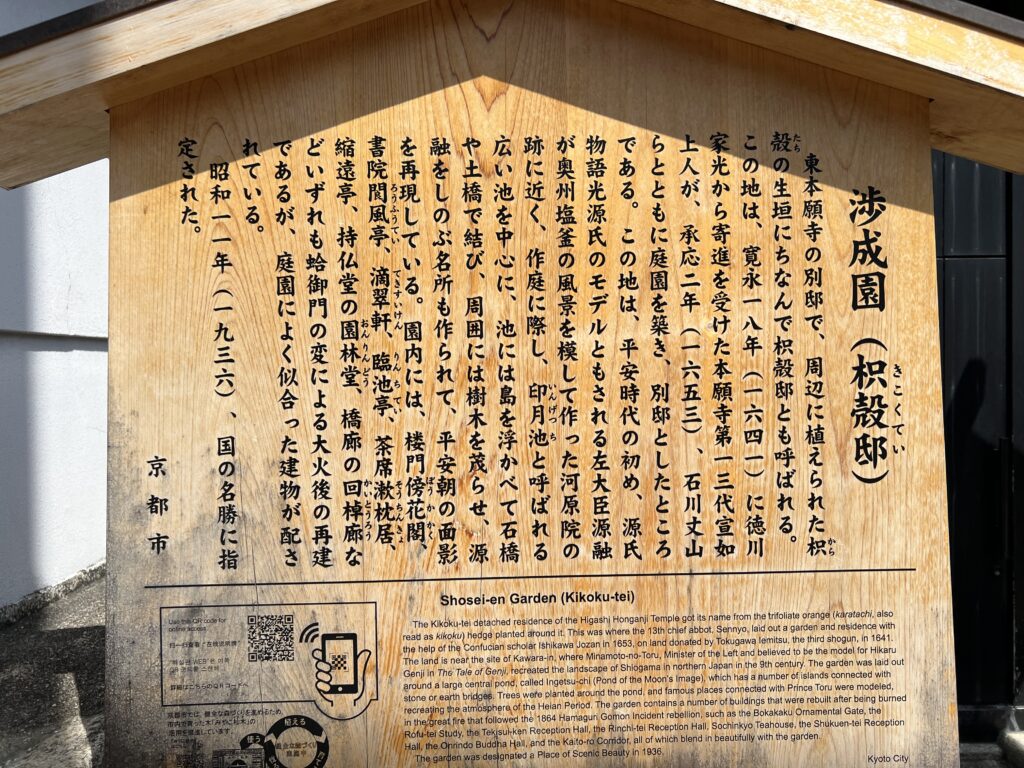 渉成園（枳殻邸）
きこくてい
東本願寺の別邸で、周辺に植えられた枳
から
殻の生垣にちなんで枳殻邸とも呼ばれる。
たち
この地は、寛永一八年（一六四一）に徳川
家光から寄進を受けた本願寺第一三代宣如
上人が、承応二年（一六五三）、石川丈山
らとともに庭園を築き、別邸としたところ
である。この地は、平安時代の初め、源氏
物語光源氏のモデルともされる左大臣源融
が奥州塩釜の風景を模して作った河原院の
跡に近く、作庭に際し、印月池と呼ばれる
いんげつち
広い池を中心に、池には島を浮かべて石橋
や土橋で結び、周囲には樹木を茂らせ、源
融をしのぶ名所も作られて、平安朝の面影
を再現している。園内には、楼門傍花閣、
ぼうかかく
書院閬風亭、滴翠軒、臨池亭、茶席漱枕居、
ろうふうてい てきすいけん りんちてい そうちんきょ
縮遠亭、持仏堂の園林堂、橋廊の回棹廊な
おんりんどう かいとうろう
どいずれも蛤御門の変による大火後の再建
であるが、庭園によく似合った建物が配さ
れている。
昭和一一年（一九三六）、国の名勝に指
定された。
京都市
Shosei-en Garden (Kikoku-tei)
The Kikoku-tei detached residence of the Higashi Honganji Temple got its name from the trifoliate orange (karatachi, also
read as kikoku) hedge planted around it. This was where the 13th chief abbot. Sennyo, laid out a garden and residence with
the help of the Confucian scholar Ishikawa Jozan in 1653, on land donated by Tokugawa Iemitsu, the third shogun, in 1641.
The land is near the site of Kawara-in, where Minamoto-no-Toru, Minister of the Left and believed to be the model for Hikaru
Genji in The Tale of Genji, recreated the landscape of Shiogama in northern Japan in the 9th century. The garden was laid out
around a large central pond, called Ingetsu-chi (Pond of the Moon's Image), which has a number of islands connected with
stone or earth bridges. Trees were planted around the pond, and famous places connected with Prince Toru were modeled,
recreating the atmosphere of the Heian Period. The garden contains a number of buildings that were rebuilt after being burned
in the great fire that followed the 1864 Hamaguri Gomon Incident rebellion, such as the Bokakaku Ornamental Gate, the
Rofu-tei Study, the Tekisui-ken Reception Hall, the Rinchi-tei Reception Hall, Sochinkyo Teahouse, the Shukuen-tei Reception
Hall, the Onrindo Buddha Hall, and the Kaito-ro Corridor, all of which blend in beautifully with the garden.
The garden was designated a Place of Scenic Beauty in 1936.
Kyoto City
Use this QR code for
online access.
詳細はこちらのQRコード
京都市では、健全な森づくりを進めるため、
市内で育った木「みやこ杣木」の
活用を推進しています。
植える
使う